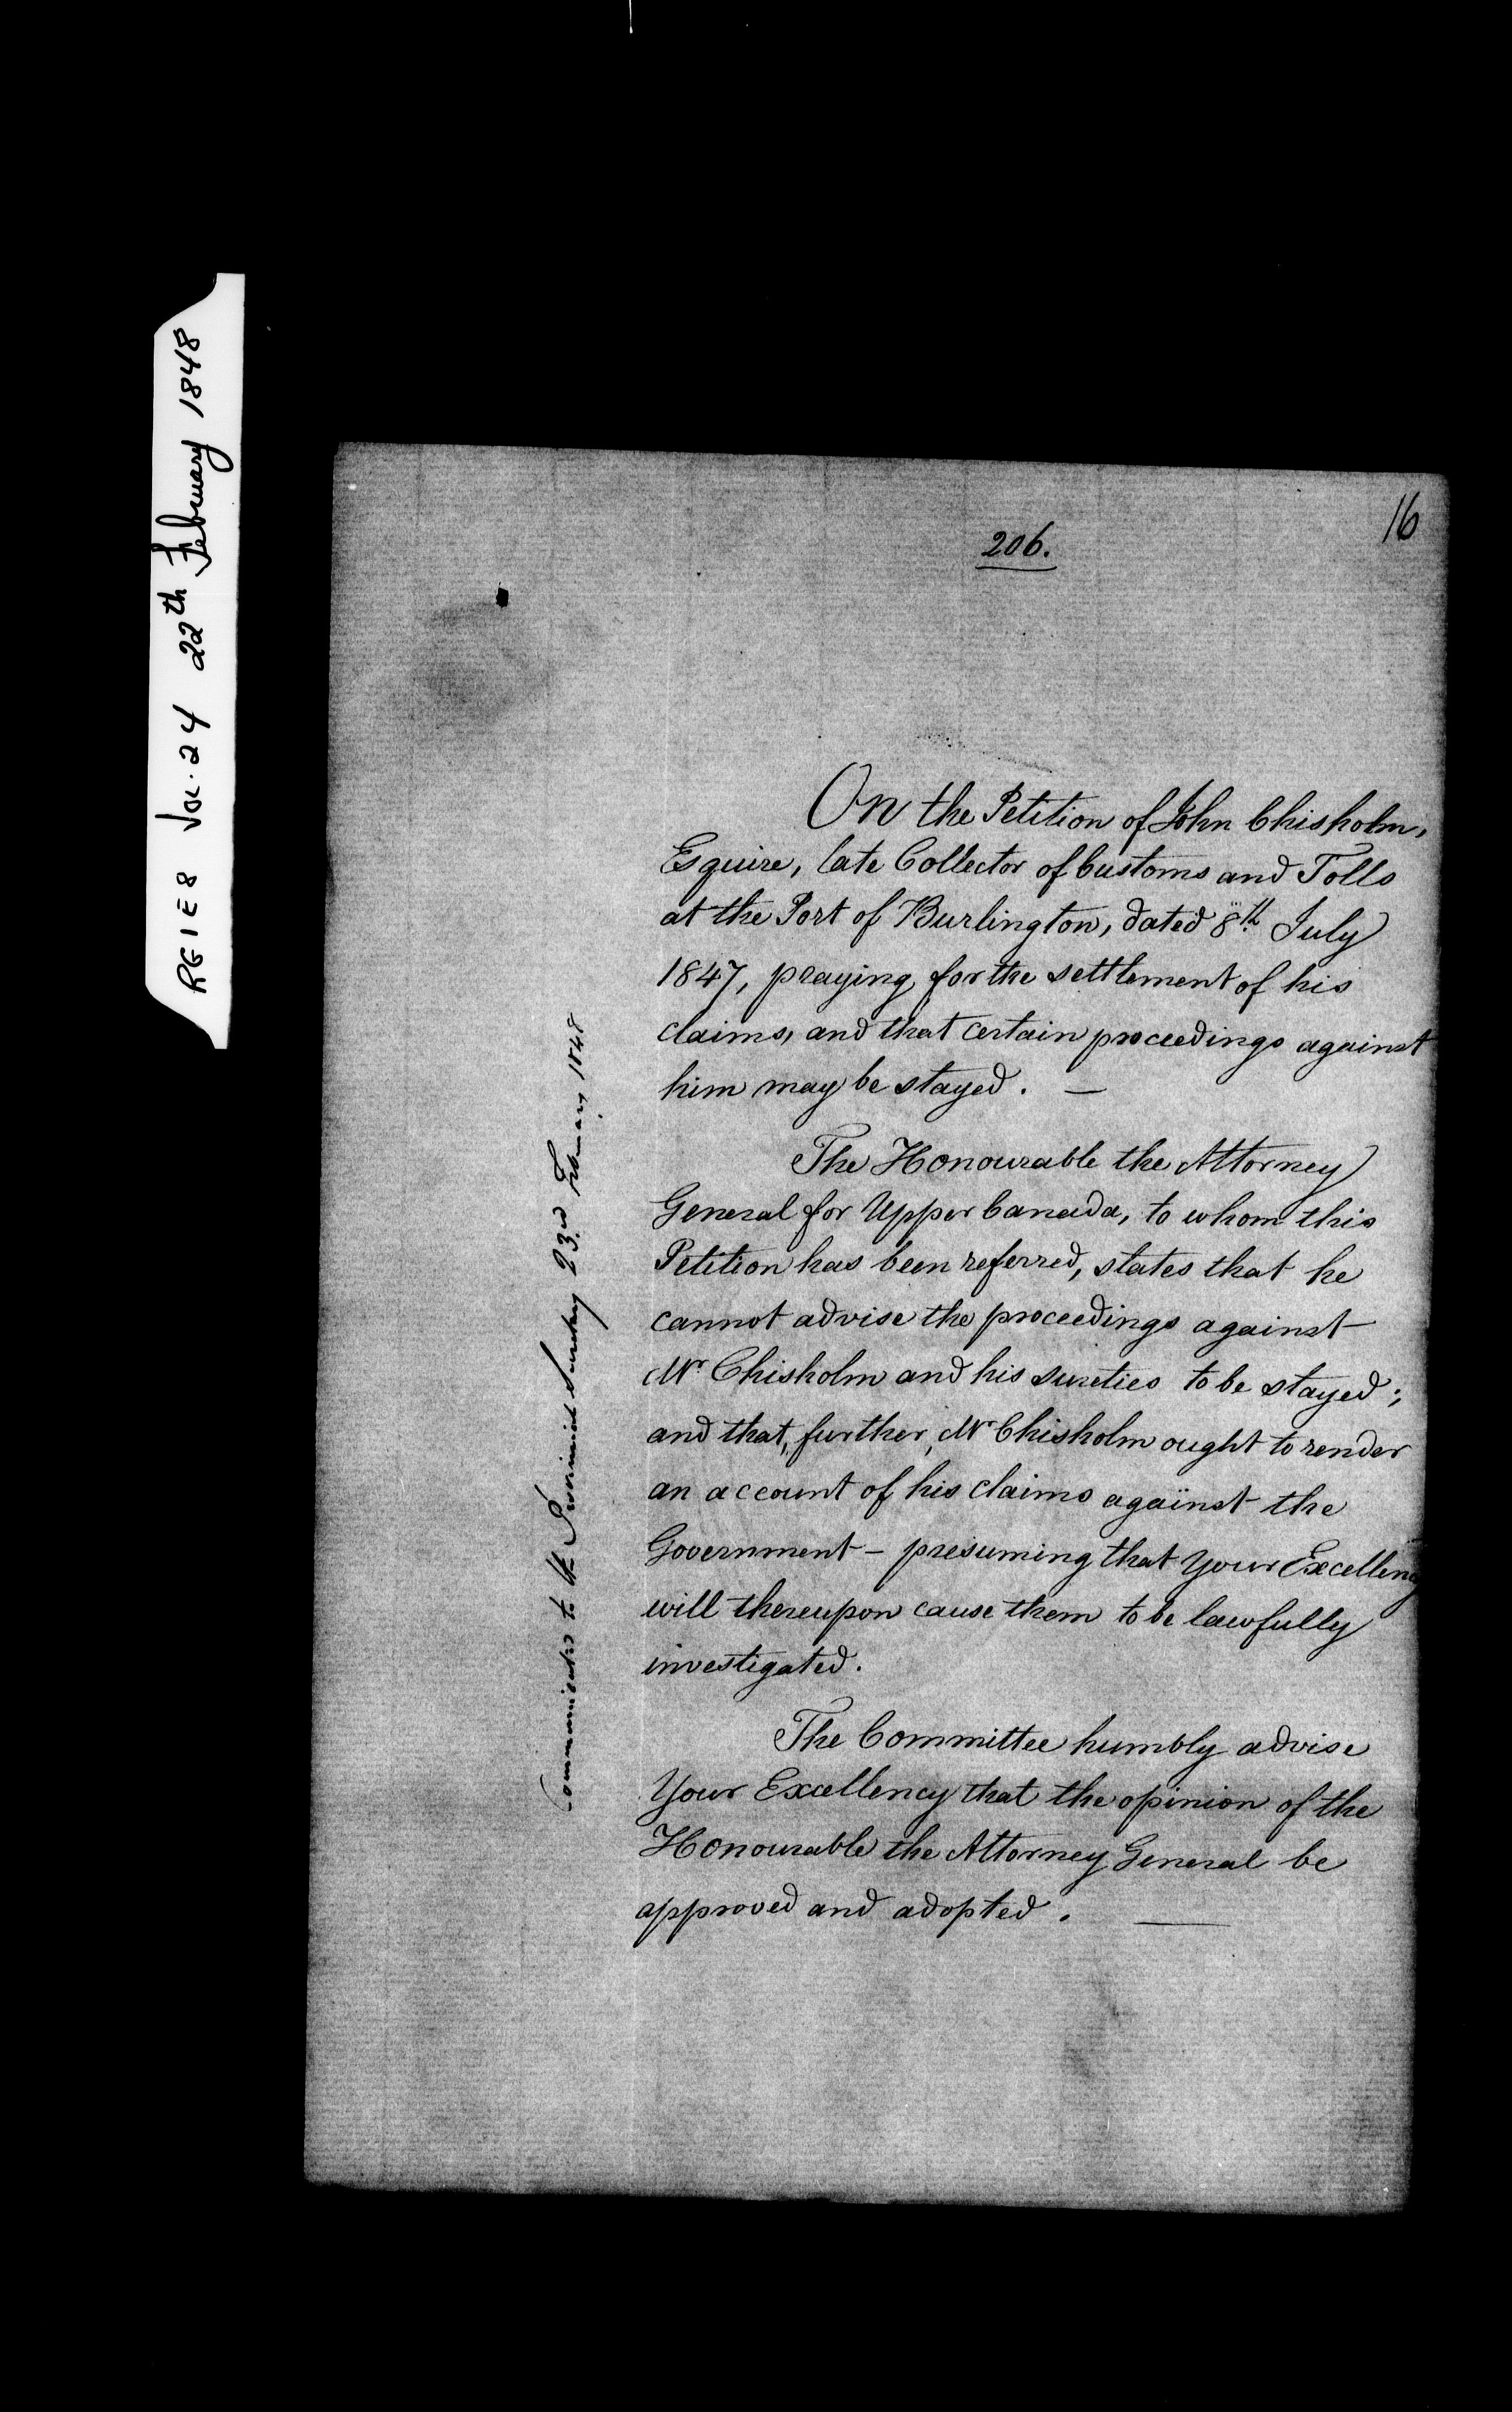 RG 1 E 8 Vol. 24 22th February 1848
16
206.
On the Petition of John Chisholm,
Esquire, late Collector of Customs and Tolls
at the Port of Burlington, dated 8th July
1847, praying for the settlement of his
claims, and that certain proceedings against
him may be stayed. —
The Honourable the Attorney
General for Upper Canada, to whom this
Petition has been referred, states that he
cannot advise the proceedings against
Mr Chisholm and his sureties to be stayed;
and that, further, Mr Chisholm ought to render
an account of his claims against the
Government – presuming that Your Excellency
will thereupon cause them to be lawfully
investigated.
The Committee humbly advise
Your Excellency that the opinion of the
Honourable the Attorney General be
approved and adopted. —
Communicated to the Provincial Secretary 23rd February 1848